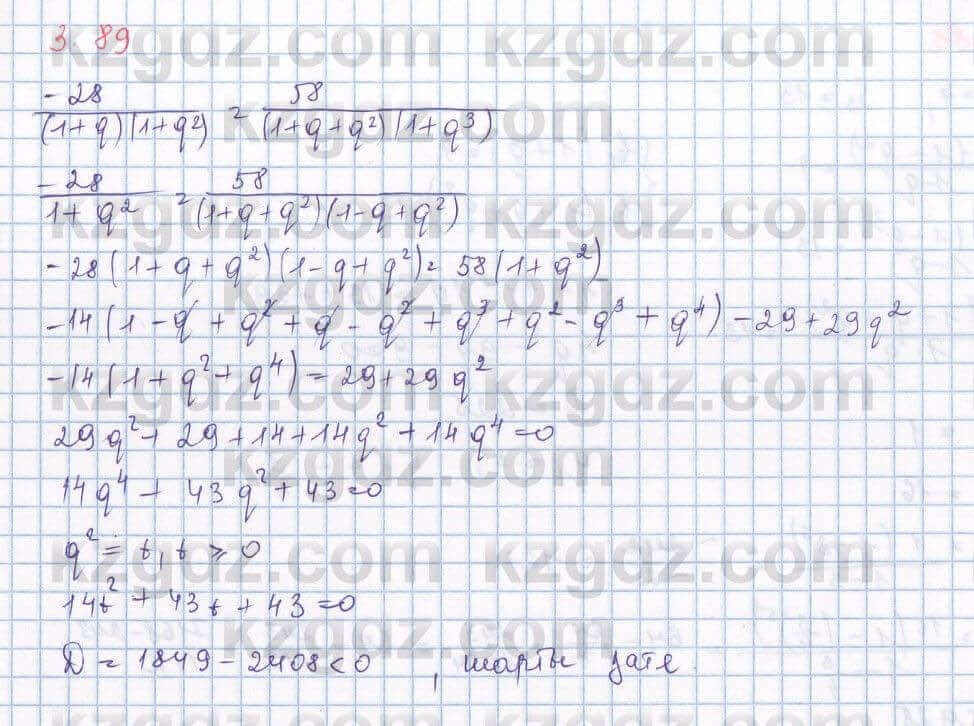 3. 89
-28/((1+q)(1+q²)) = 58/((1+q+q²)(1+q³))
-28/(1+q²) = 58/((1+q+q²)(1-q+q²))
-28(1+q+q²)(1-q+q²) = 58(1+q²)
-14(1-q+q²+q-q²+q³+q²-q³+q⁴) - 29+29q²
-14(1+q²+q⁴) = 29+29q²
29q²+29+14+14q²+14q⁴=0
14q⁴+43q²+43=0
q²=t, t≥0
14t²+43t+43=0
D=1849-2408<0, шарты қате
kzgdz.com kzgdz.com
kzgdz.com kzgdz.com
kzgdz.com kzgdz.com
kzgdz.com kzgdz.com
kzgdz.com kzgdz.com
kzgdz.com kzgdz.com
kzgdz.com kzgdz.com